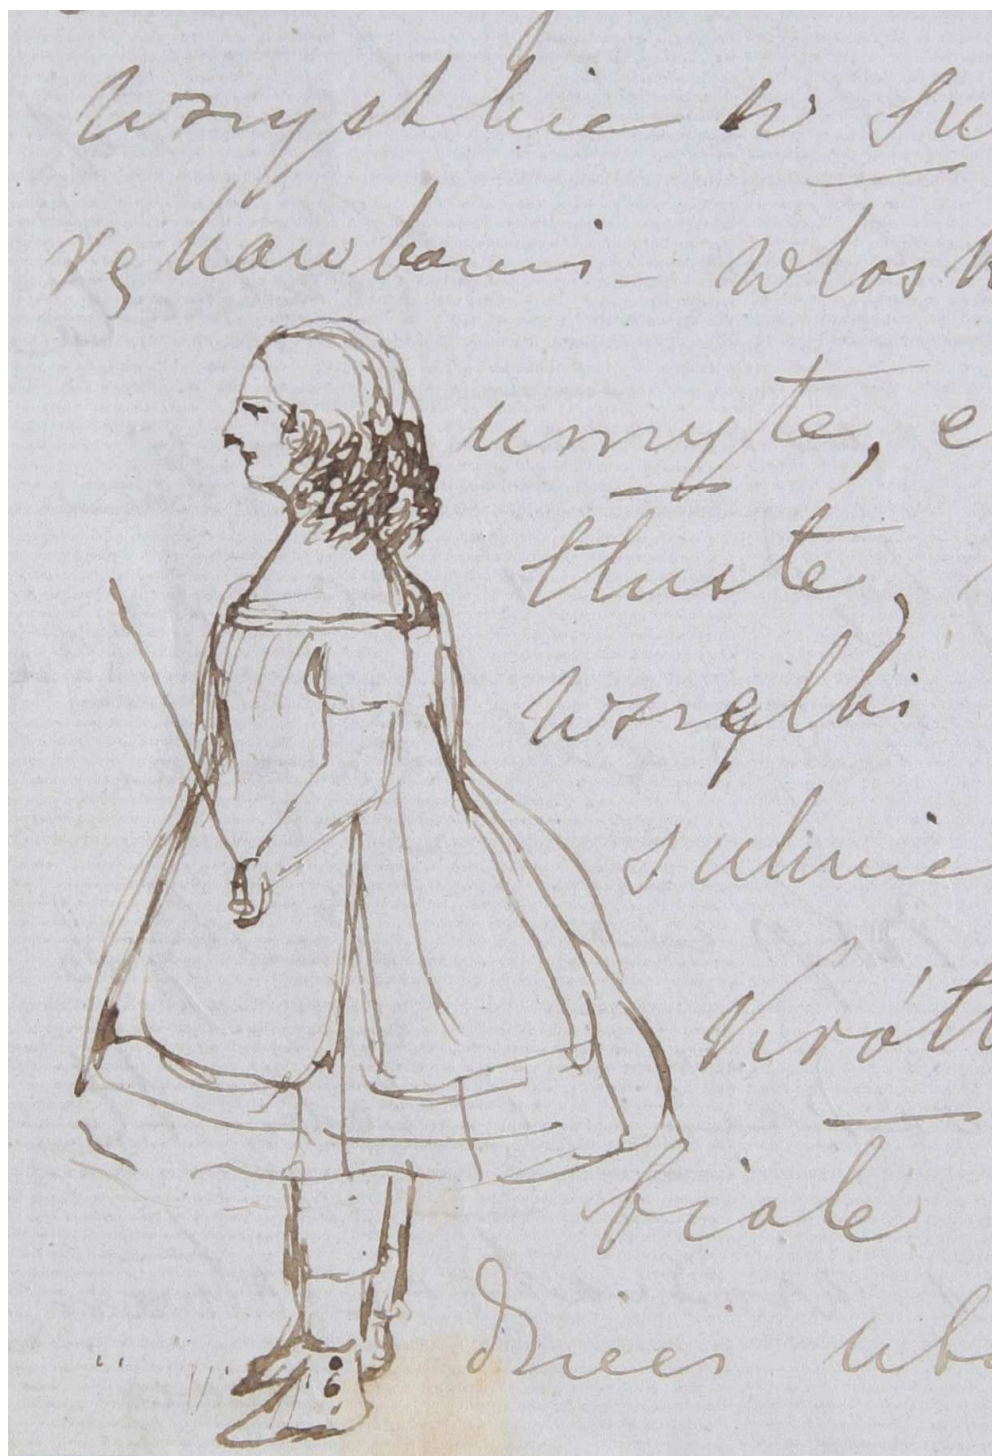 wszystkie w su
rękawkami - włosk
umyte, e
tłuste,
wszęlki
suknie
krótk
białe
dzieci ubi